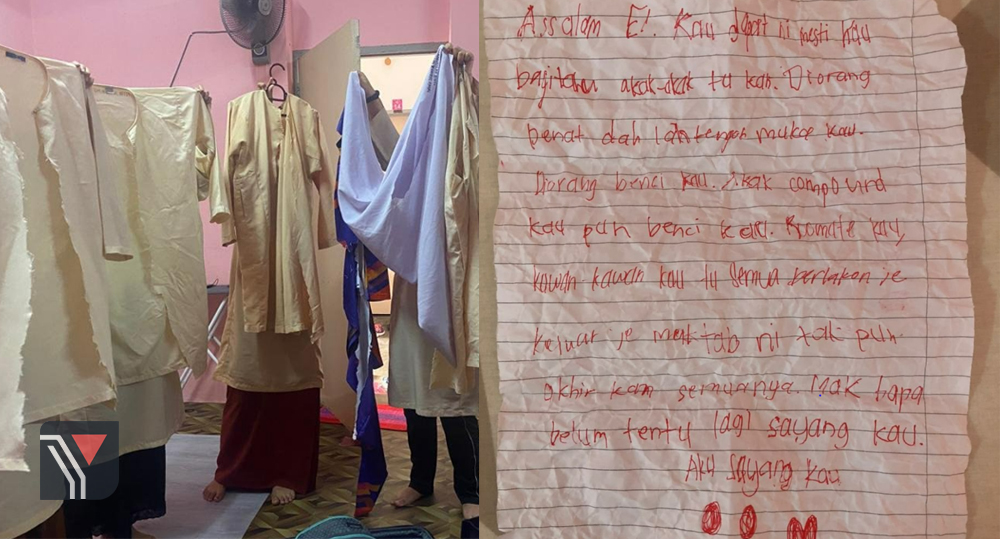 Assalam E!. Kau dapat ni mesti kau
bagitahu akak-akak tu kan. Diorang
penat dah layan mukae kau.
Diorang benci kau. Akak compound
kau pun benci kau. Romate kau,
kawan kawan kau tu semua berlakon je
keluar je maktab ni tak pun
akhir kam semuanya. Mak bapa
belum tentu lagi sayang kau.
Aku sayang kau